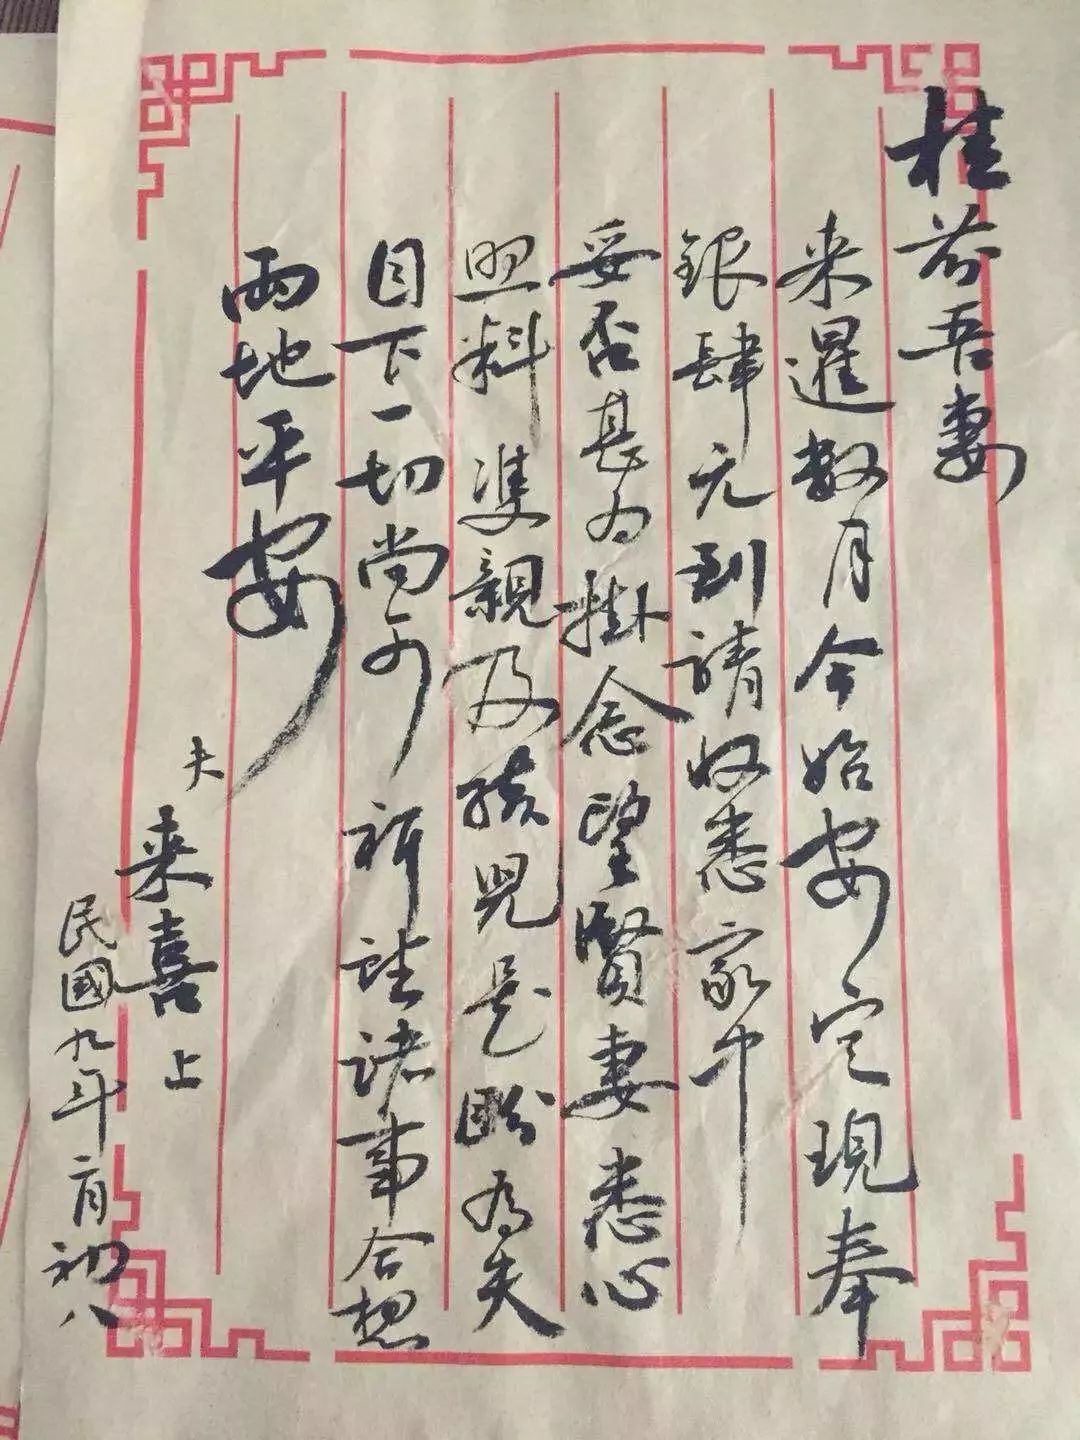 桂芬吾妻
来暹数月今始安定現奉
銀肆元到請收悉家中
妥否甚为掛念望賢妻悉心
照料雙親及孩兒是盼為夫
目下一切尚可祈諸事合想
兩地平安
夫
来喜上
民國九年二月初八